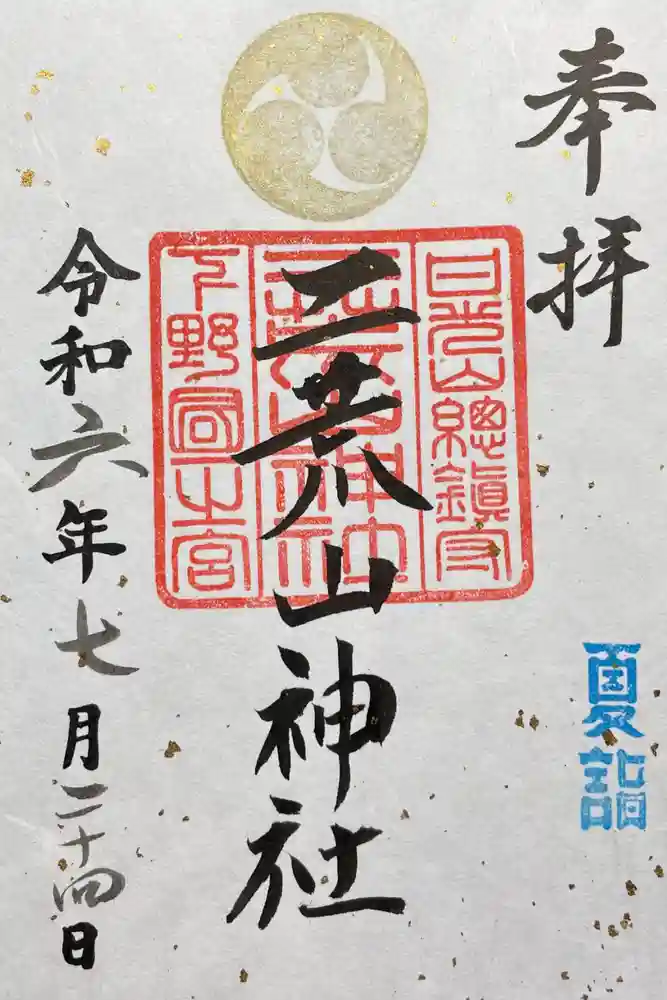 奉拝
夏詣
日光山總鎮守
二荒山神社
下野國一之宮
二荒山神社
令和六年七月二十四日